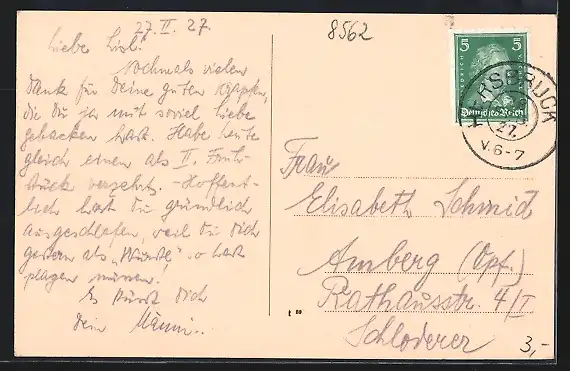 27. II. 27.
Liebe Lisl!
Nochmals vielen
Dank für Deine guten
die Du ja mit soviel Liebe
gebacken hast. Habe heute
gleich einen als II. Früh-
stück verzehrt. - Hoffent-
lich hast Du gründlich
ausgeschlafen, weil Du Dich
gestern als so hast
plagen müssen!
Es küsst Dich
Dein Männi..
8562
5 5
Deutsches Reich
HERSBRUCK
27.
V. 6-7
Frau
Elisabeth Schmid
Amberg (Opf.)
Rathausstr. 4/I
Schloderer
3,-